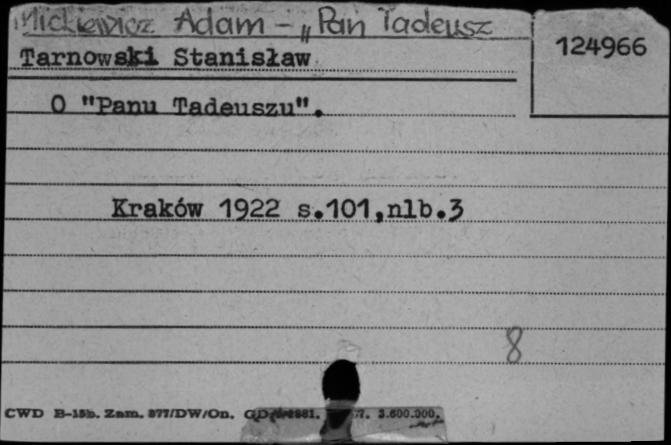 Mickiewicz Adam - „Pan Tadeusz
124966
Tarnowski Stanisław
O "Panu Tadeuszu".
Kraków 1922 s.101,nlb.3
8
CWD B-15b. Zam. 877/DW/On. 3.600.000.